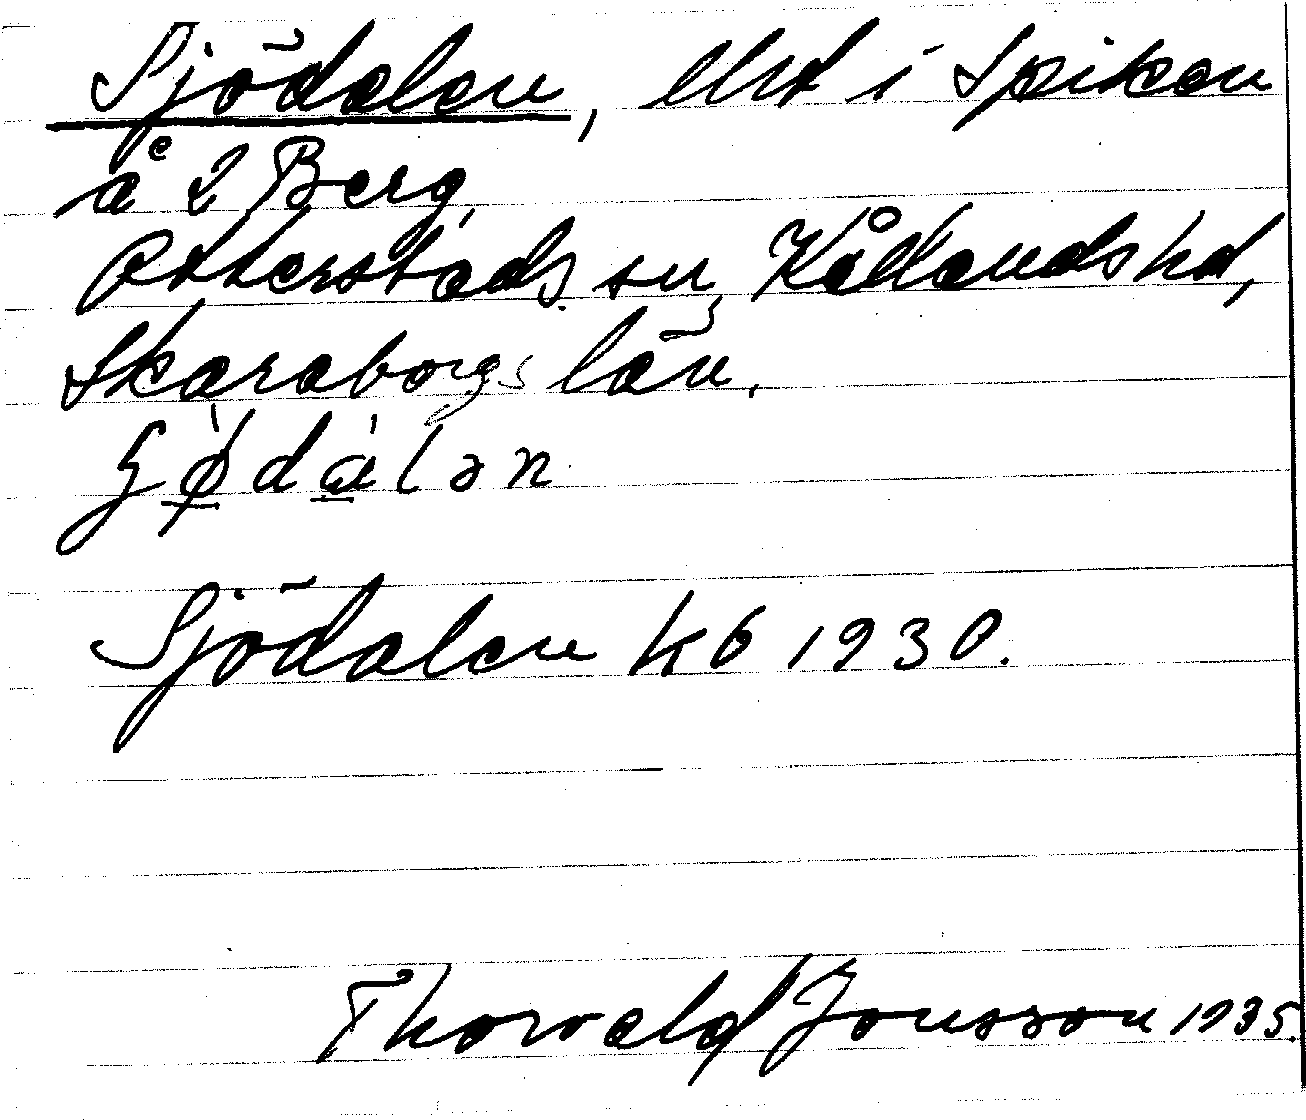 Sjödalen, lht i Spiken
å 2 Berg,
Otterstads sn, Kållands hd,
Skaraborgs län.
ʃø̀dálən
Sjödalen kb 1930.
Thorvald Jonsson 1935.